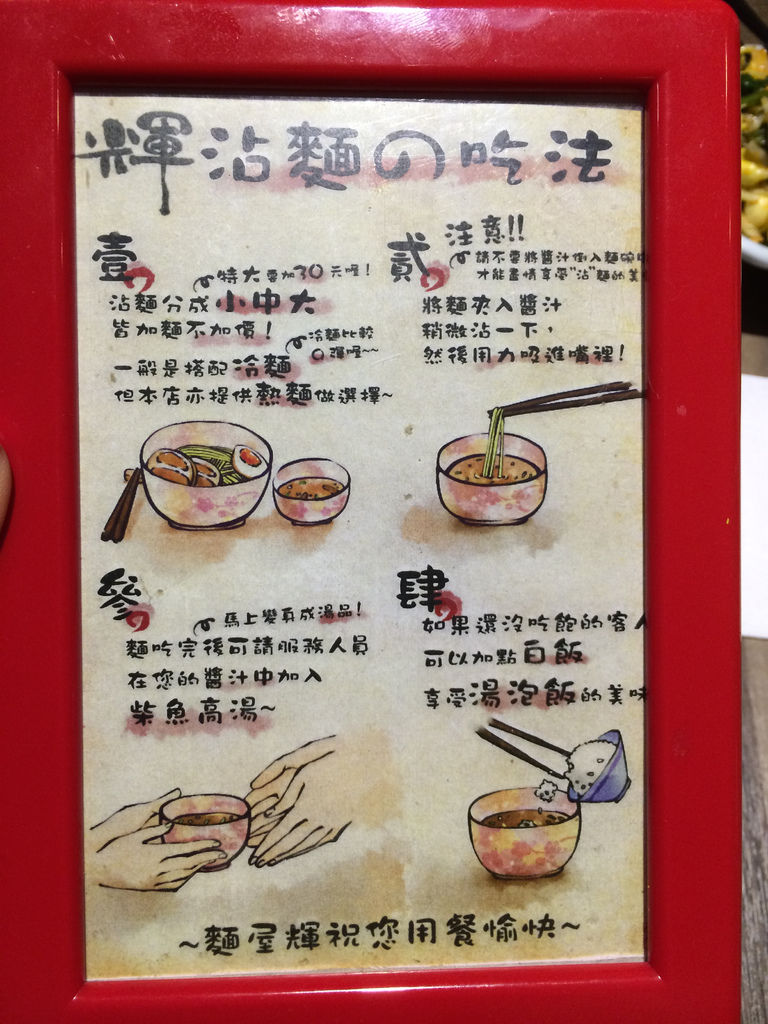 輝沾麵の吃法
壹
特大要加30元喔!
沾麵分成小中大
皆加麵不加價!
冷麵比較
Q彈喔~~
一般是搭配冷麵
但本店亦提供熱麵做選擇~
貳
注意!!
請不要將醬汁倒入麵碗中
才能盡情享受"沾"麵的美
將麵夾入醬汁
稍微沾一下,
然後用力吸進嘴裡!
參
馬上變身成湯品!
麵吃完後可請服務人員
在您的醬汁中加入
柴魚高湯~
肆
如果還沒吃飽的客人
可以加點白飯
享受湯泡飯的美味
~麵屋輝祝您用餐愉快~